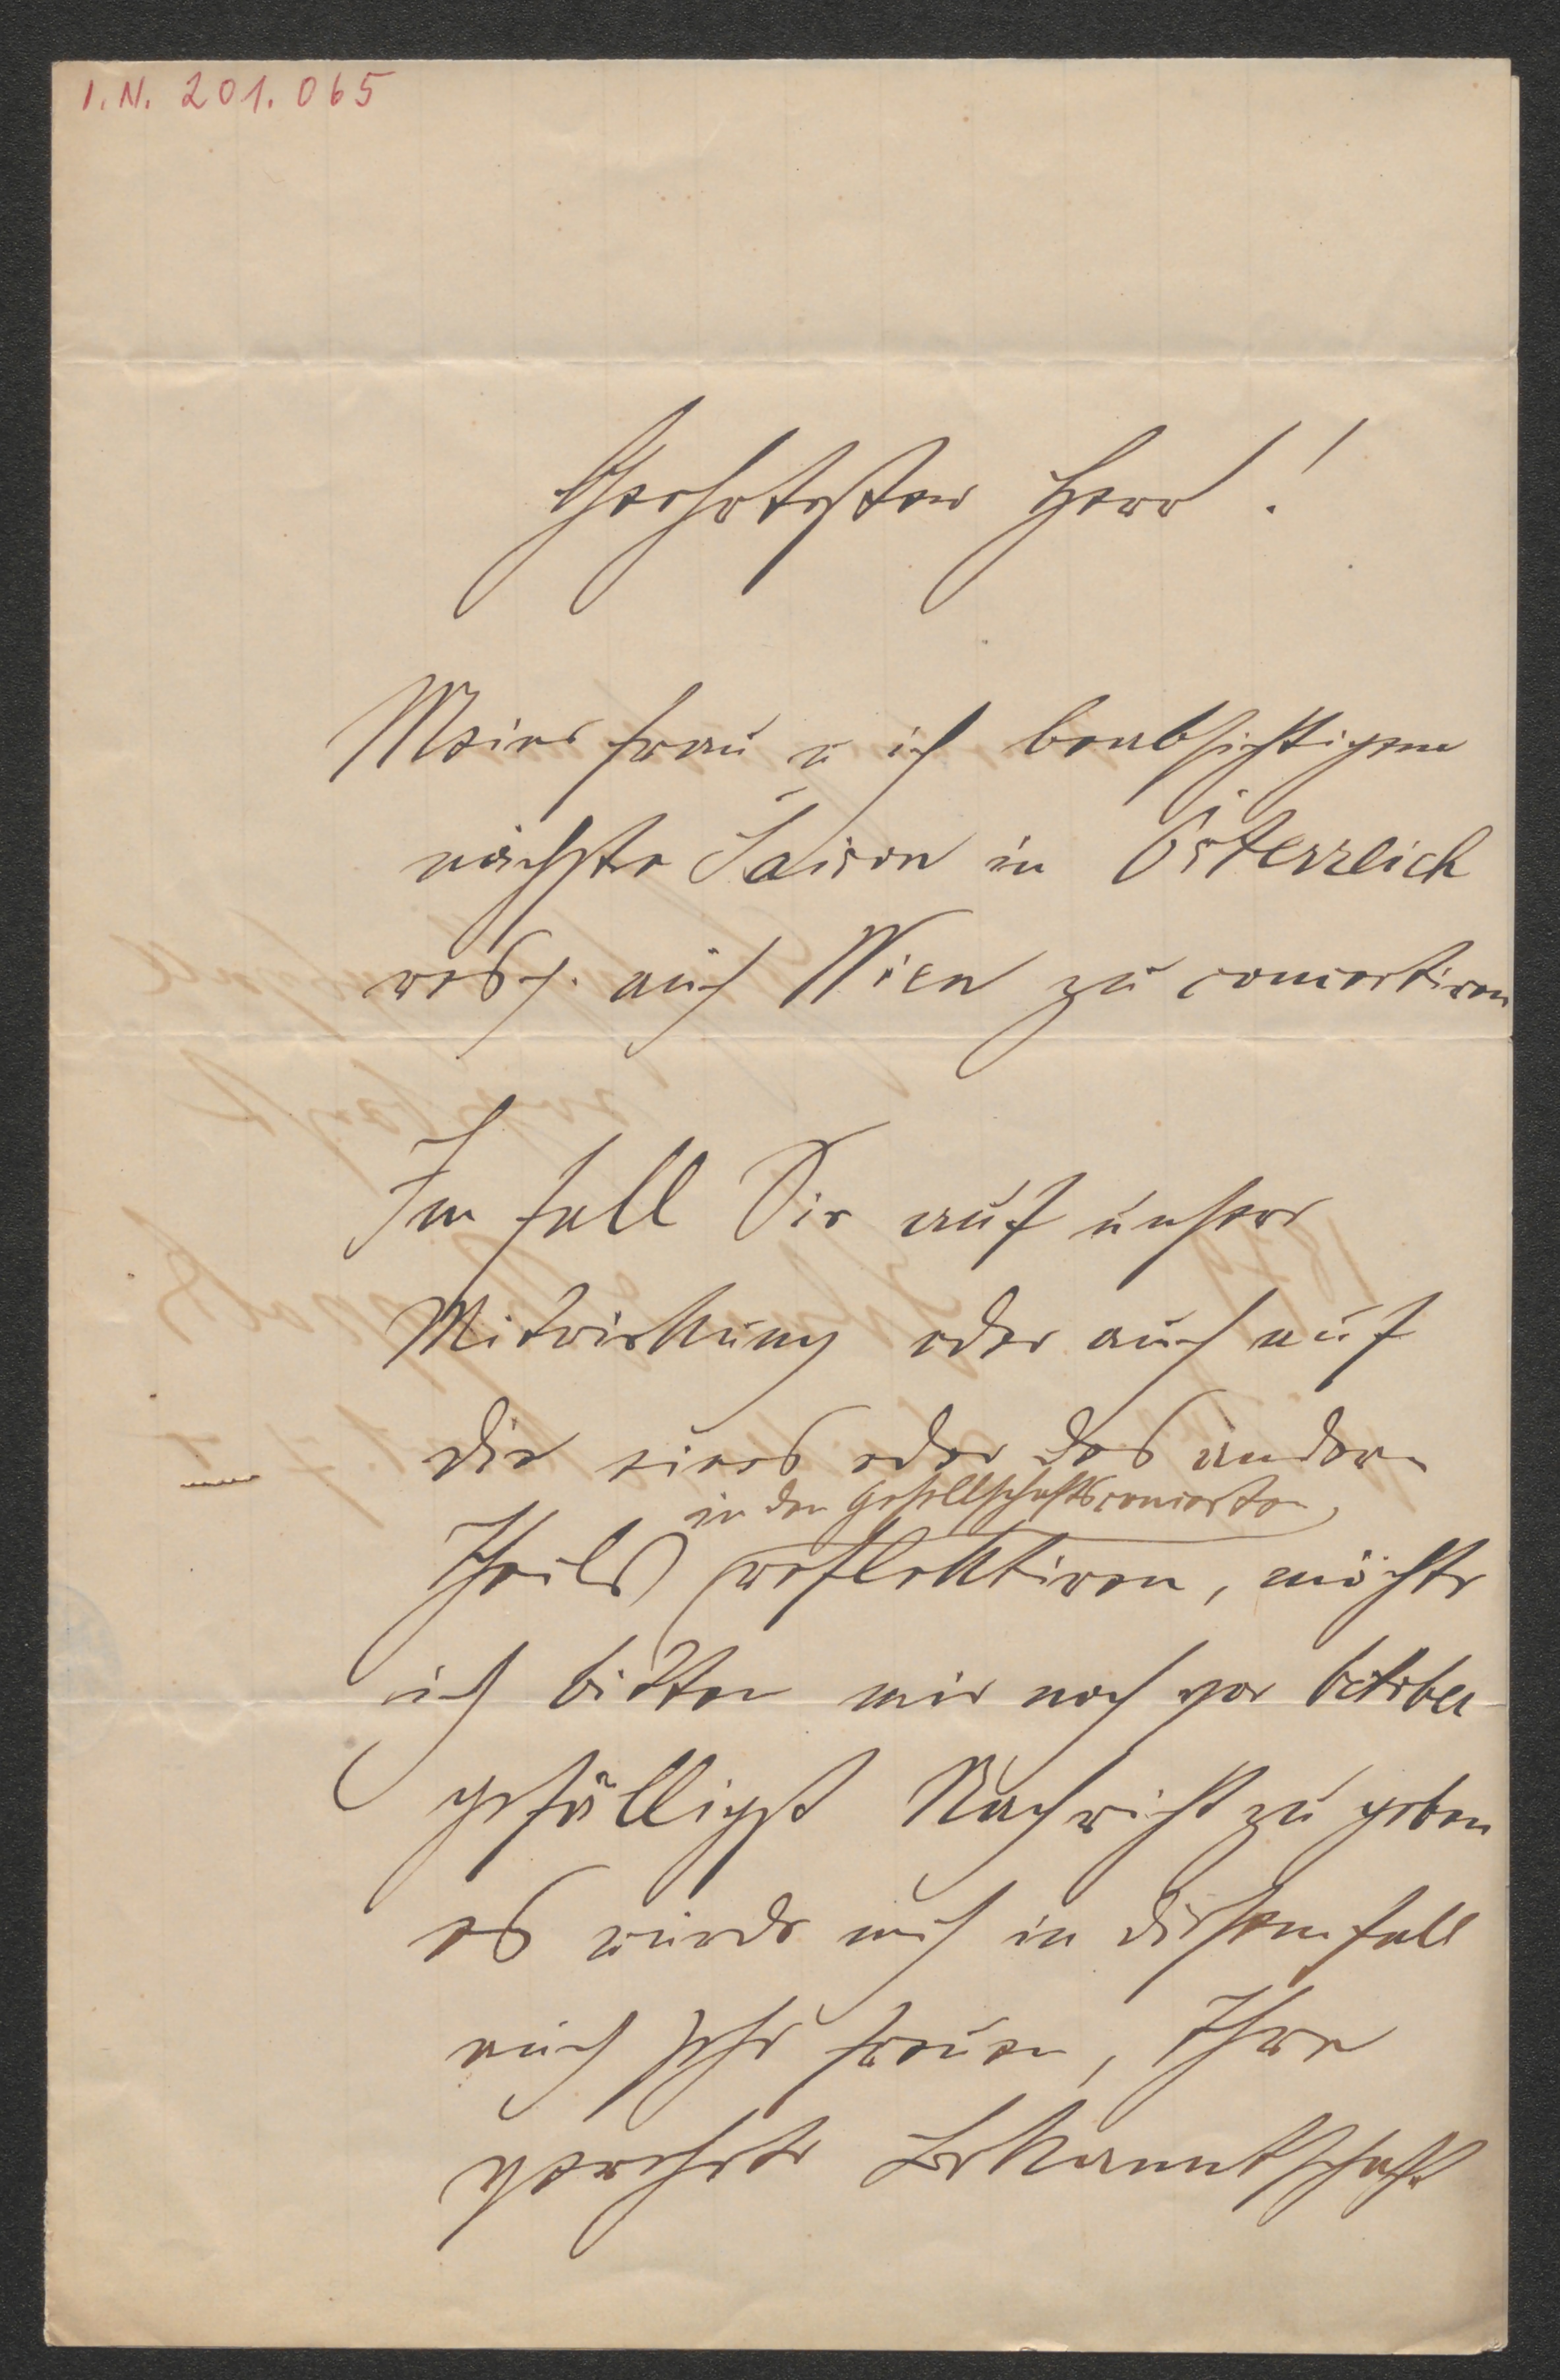 I.N. 201.065
Geehrtester Herr!
Meine Frau u ich beabsichtigen
nächste Saison in Österreich
resp. auch Wien zu concertiren
Im Fall Sie auf unsere
Mitwirkung oder auch auf
die eines oder des andern
in den Gesellschaftsconcerten
Theils reflektiren, möchte
ich bitten mir noch vor October
gefälligst Nachricht zu geben
es würde mich in diesem Fall
auch sehr freuen, Ihre
geehrte Bekanntschaft